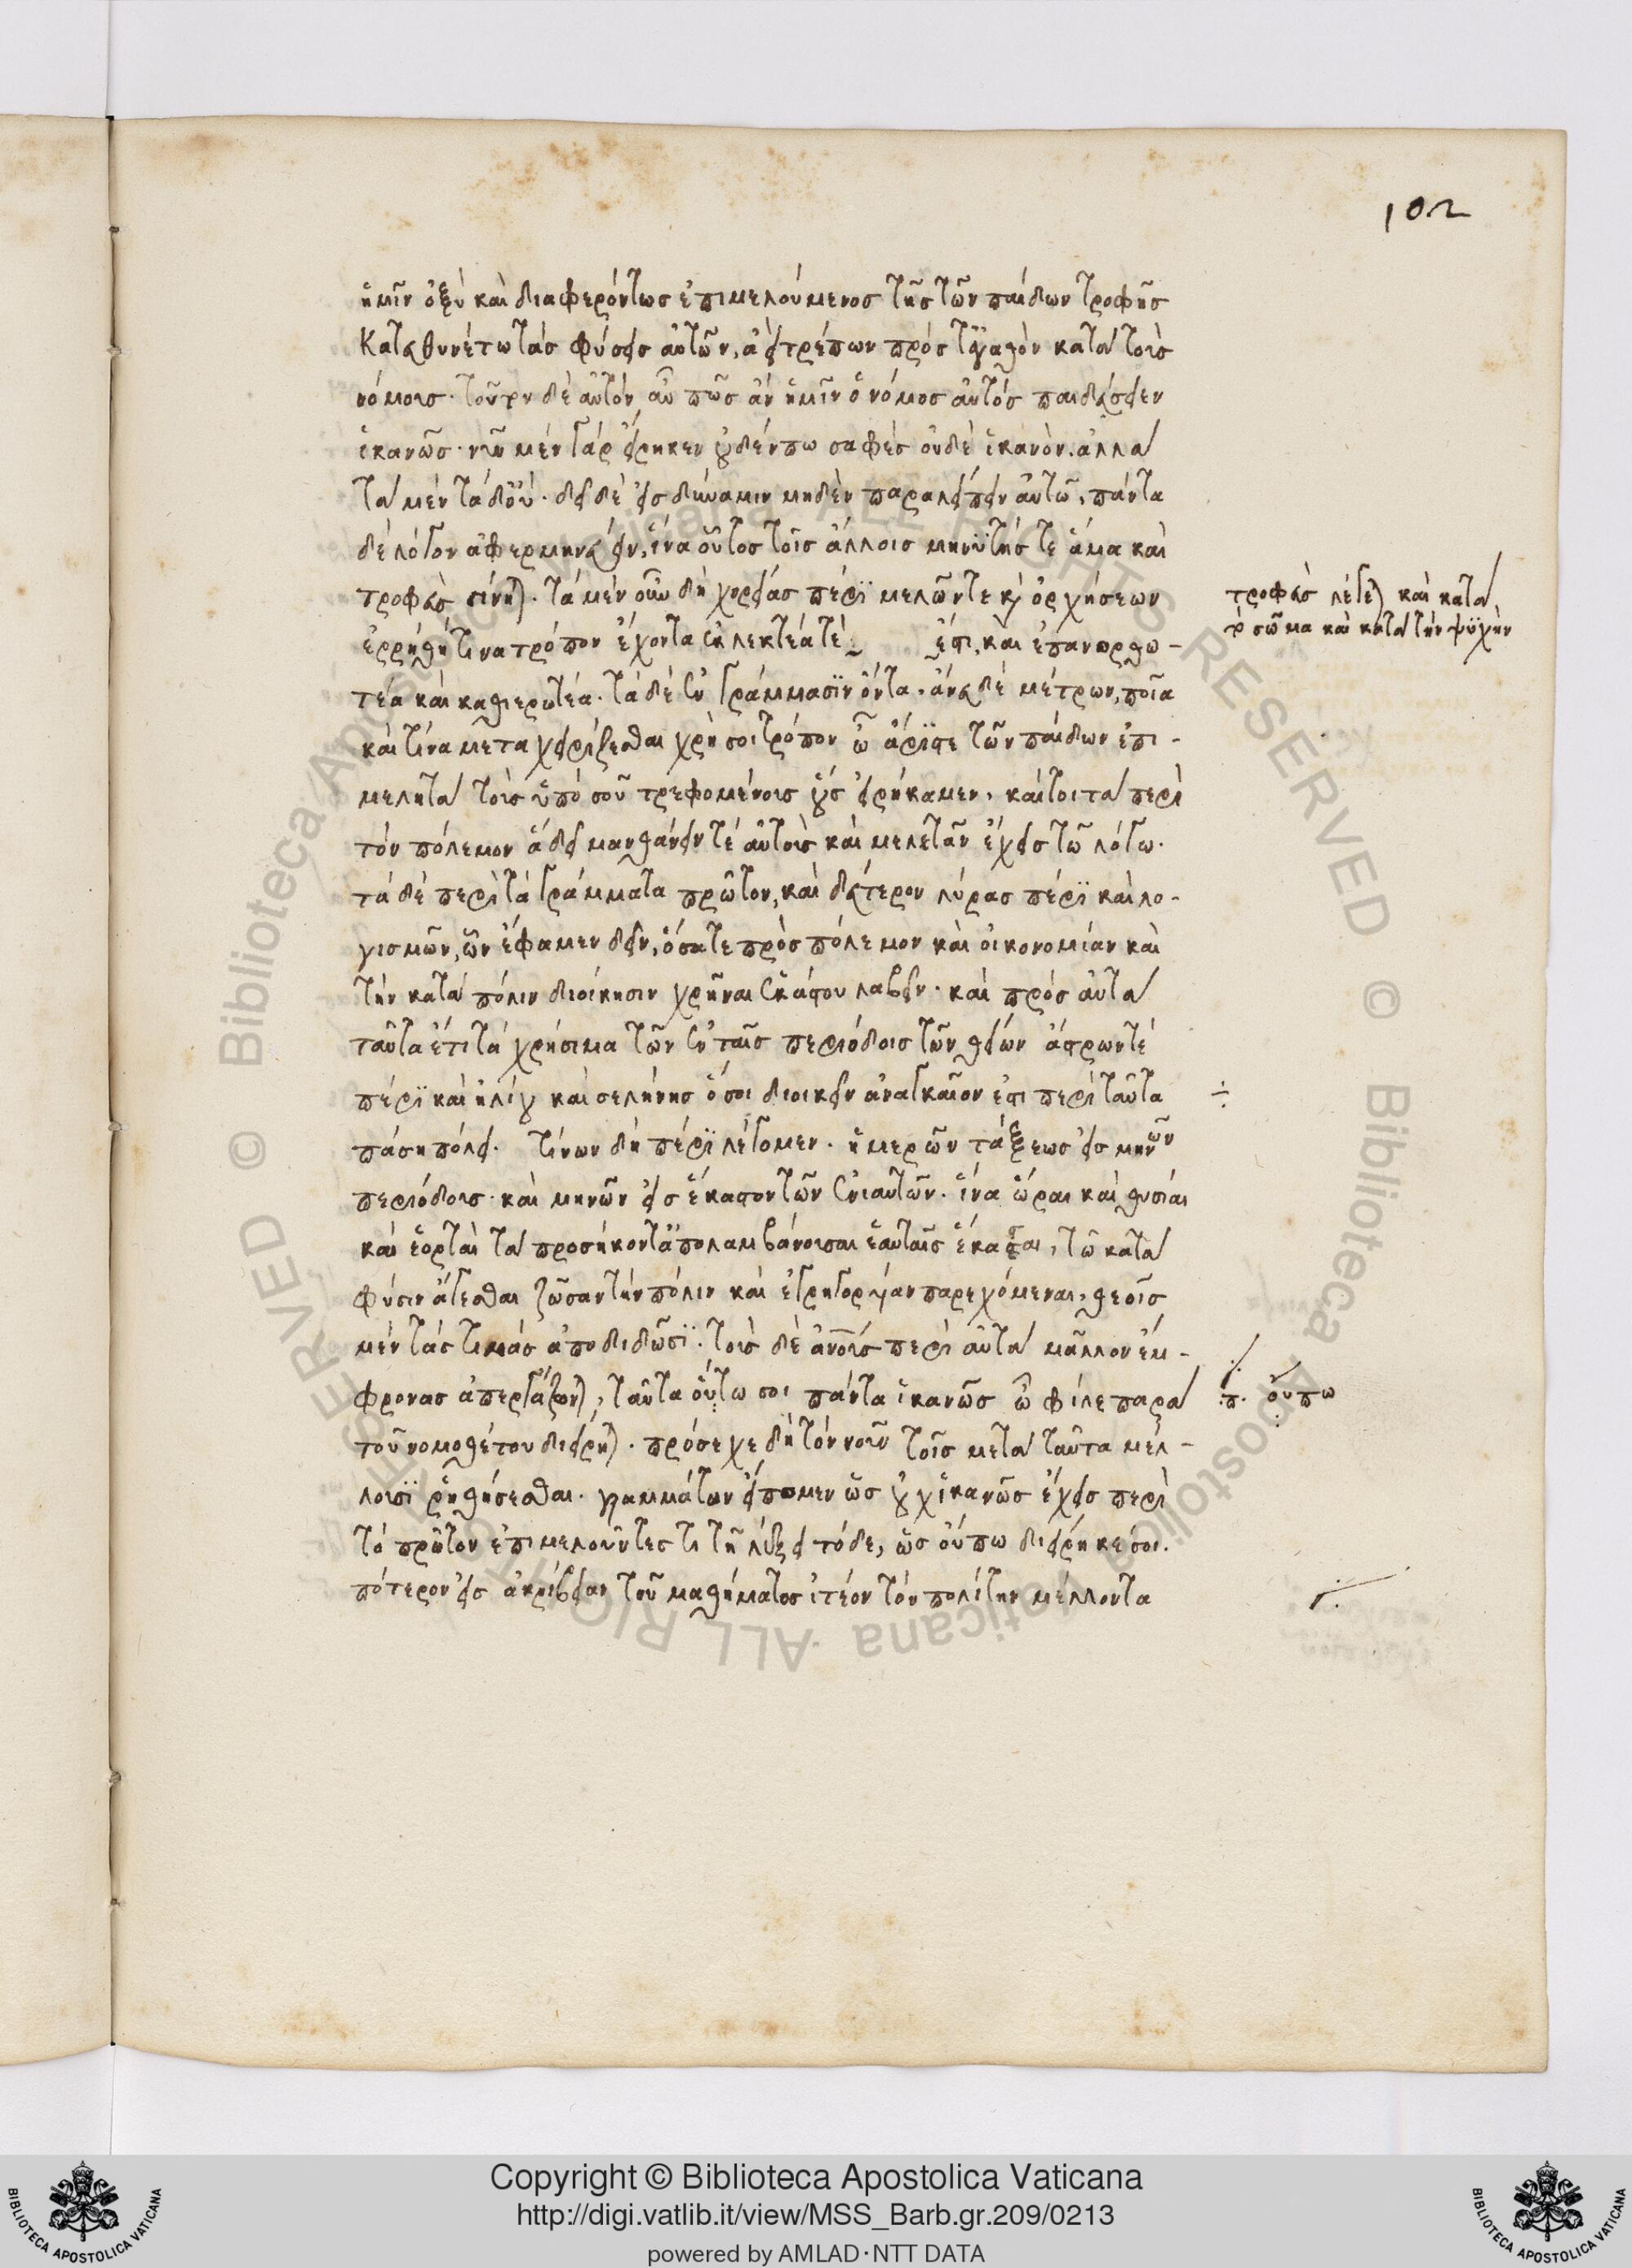 102
ἡμῖν ὀξὺ καὶ διαφερόντως ἐπιμελούμενος τῆς τῶν παίδων τροφῆς
Κατευθυνέτω τὰς φύσεις αὐτῶν, ἀεὶ τρέπων πρὸς τἀγαθὸν κατὰ τοὺς
νόμους. τοῦτον δὲ αὐτὸν αὖ πῶς ἂν ἡμῖν ὁ νόμος αὐτὸς παιδεύσειεν
ἱκανῶς. νῦν μὲν γὰρ εἴρηκεν οὐδέν πω σαφὲς οὐδὲ ἱκανόν. ἀλλὰ
τὰ μὲν τὰ δ' οὔ. δεῖ δὲ εἰς δύναμιν μηδὲν παραλείπειν αὐτῷ, πάντα
δὲ λόγον ἀφερμηνεύειν, ἵνα οὗτος τοῖς ἄλλοις μηνυτής τε ἅμα καὶ
τροφεὺς γίνηται. τὰ μὲν οὖν δὴ χορείας πέρι μελῶν τε καὶ ὀρχήσεων
ἐρρήθη τίνα τρόπον ἔχοντα ἐκλεκτέα τέ ἐστι, καὶ ἐπανορθω-
τέα καὶ καθιερωτέα. τὰ δὲ ἐν γράμμασιν ὄντα. ἄνευ δὲ μέτρων, ποῖα
καὶ τίνα μεταχειρίζεσθαι χρή σοι τρόπον ὦ ἄριστε τῶν παίδων ἐπι-
μελητὰ τοὺς ὑπὸ σοῦ τρεφομένους οὐκ εἰρήκαμεν. καίτοι τὰ περὶ
τὸν πόλεμον ἃ δεῖ μανθάνειν τε αὐτοὺς καὶ μελετᾶν ἔχεις τῷ λόγῳ.
τὰ δὲ περὶ τὰ γράμματα πρῶτον, καὶ δεύτερον λύρας πέρι καὶ λο-
γισμῶν, ὧν ἔφαμεν δεῖν, ὅσα τε πρὸς πόλεμον καὶ οἰκονομίαν καὶ
τὴν κατὰ πόλιν διοίκησιν χρῆναι ἑκάστου λαβεῖν. καὶ πρὸς αὐτὰ
ταῦτα ἔτι τὰ χρήσιμα τῶν ἐν ταῖς περιόδοις τῶν θείων ἄστρων τέ
πέρι καὶ ἡλίου καὶ σελήνης ὅσοι διοικεῖν ἀναγκαῖον ἐστι περὶ ταῦτα
πάσῃ πόλει. τίνων δὴ πέρι λέγομεν. ἡμερῶν τάξεως εἰς μηνῶν
περιόδους. καὶ μηνῶν εἰς ἕκαστον τῶν ἐνιαυτῶν. ἵνα ὧραι καὶ θυσίαι
καὶ ἑορταὶ τὰ προσήκοντα ἀπολαμβάνουσαι ἑαυταῖς ἕκασται, τῷ κατὰ
φύσιν ἄγεσθαι ζῶσαν τὴν πόλιν καὶ ἐγρηγορυῖαν παρεχόμεναι, θεοῖς
μὲν τὰς τιμὰς ἀποδιδῶσι. τοὺς δὲ ἀνθρώπους περὶ αὐτὰ μᾶλλον ἔμ-
φρονας ἀπεργάζωνται, ταῦτα οὕτω σοι πάντα ἱκανῶς ὦ φίλε παρὰ
τοῦ νομοθέτου διείρηται. πρόσεχε δὴ τὸν νοῦν τοῖς μετὰ ταῦτα μέλ-
λουσι ῥηθήσεσθαι. γραμμάτων εἴπομεν ὡς οὐχ ἱκανῶς ἔχεις περὶ
τὸ πρῶτον ἐπιμελοῦντες τι τῇ λέξει τόδε, ὡς οὔπω διείρηκέ σοι.
πότερον εἰς ἀκρίβειαν τοῦ μαθήματος ἰτέον τὸν πολίτην μέλλοντα
τροφεὺς λέγεται καὶ κατὰ
τὸ σῶμα καὶ κατὰ τὴν ψυχήν
π. οὔπω
© Biblioteca Apostolica Vaticana ALL RIGHTS RESERVED
Copyright © Biblioteca Apostolica Vaticana
http://digi.vatlib.it/view/MSS_Barb.gr.209/0213
powered by AMLAD·NTT DATA
BIBLIOTECA APOSTOLICA VATICANA
BIBLIOTECA APOSTOLICA VATICANA